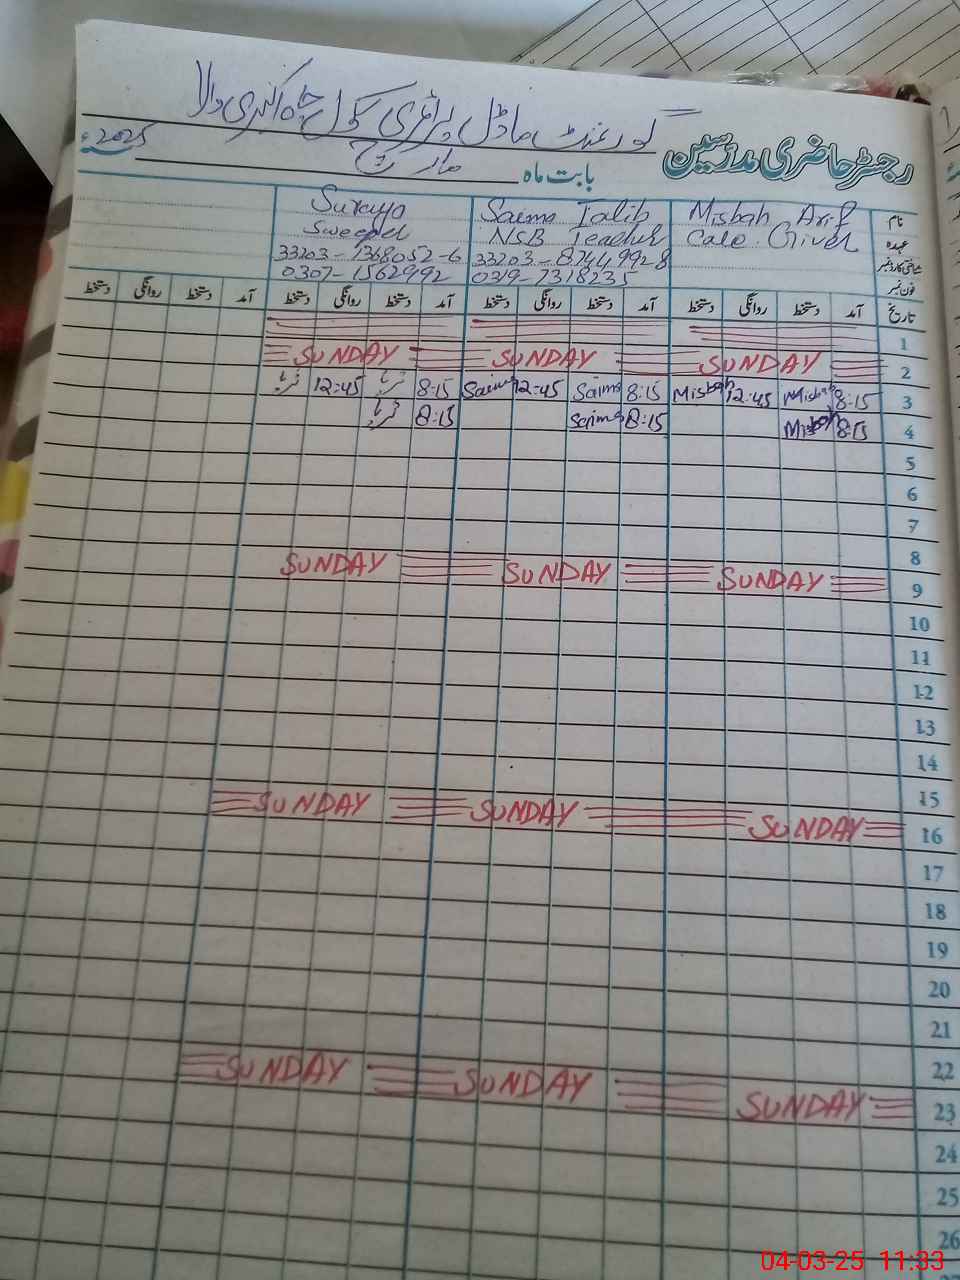 گورنمنٹ ماڈل پرائمری سکول چاہ اکبری والا
رجسٹر حاضری مدرسین
بابت ماہ مارچ 2025ء
نام Misbah Arif Saima Talib Suraya
عہدہ Care Giver NSB Teacher Sweeper
شناختی کارڈ نمبر 33203-8244992-8 33203-1368052-6
فون نمبر 0319-7318235 0307-1562992
تاریخ آمد دستخط روانگی دستخط آمد دستخط روانگی دستخط آمد دستخط روانگی دستخط آمد دستخط روانگی دستخط
1
2 SUNDAY SUNDAY SUNDAY
3 8:15 Misbah 12:45 Misbah 8:15 Saima 12:45 Saima 8:15 ثریا 12:45 ثریا
4 8:15 Misbah 8:15 Saima 8:15 ثریا
5
6
7
8
9 SUNDAY SUNDAY SUNDAY
10
11
12
13
14
15
16 SUNDAY SUNDAY SUNDAY
17
18
19
20
21
22
23 SUNDAY SUNDAY SUNDAY
24
25
26
04-03-25 11:33